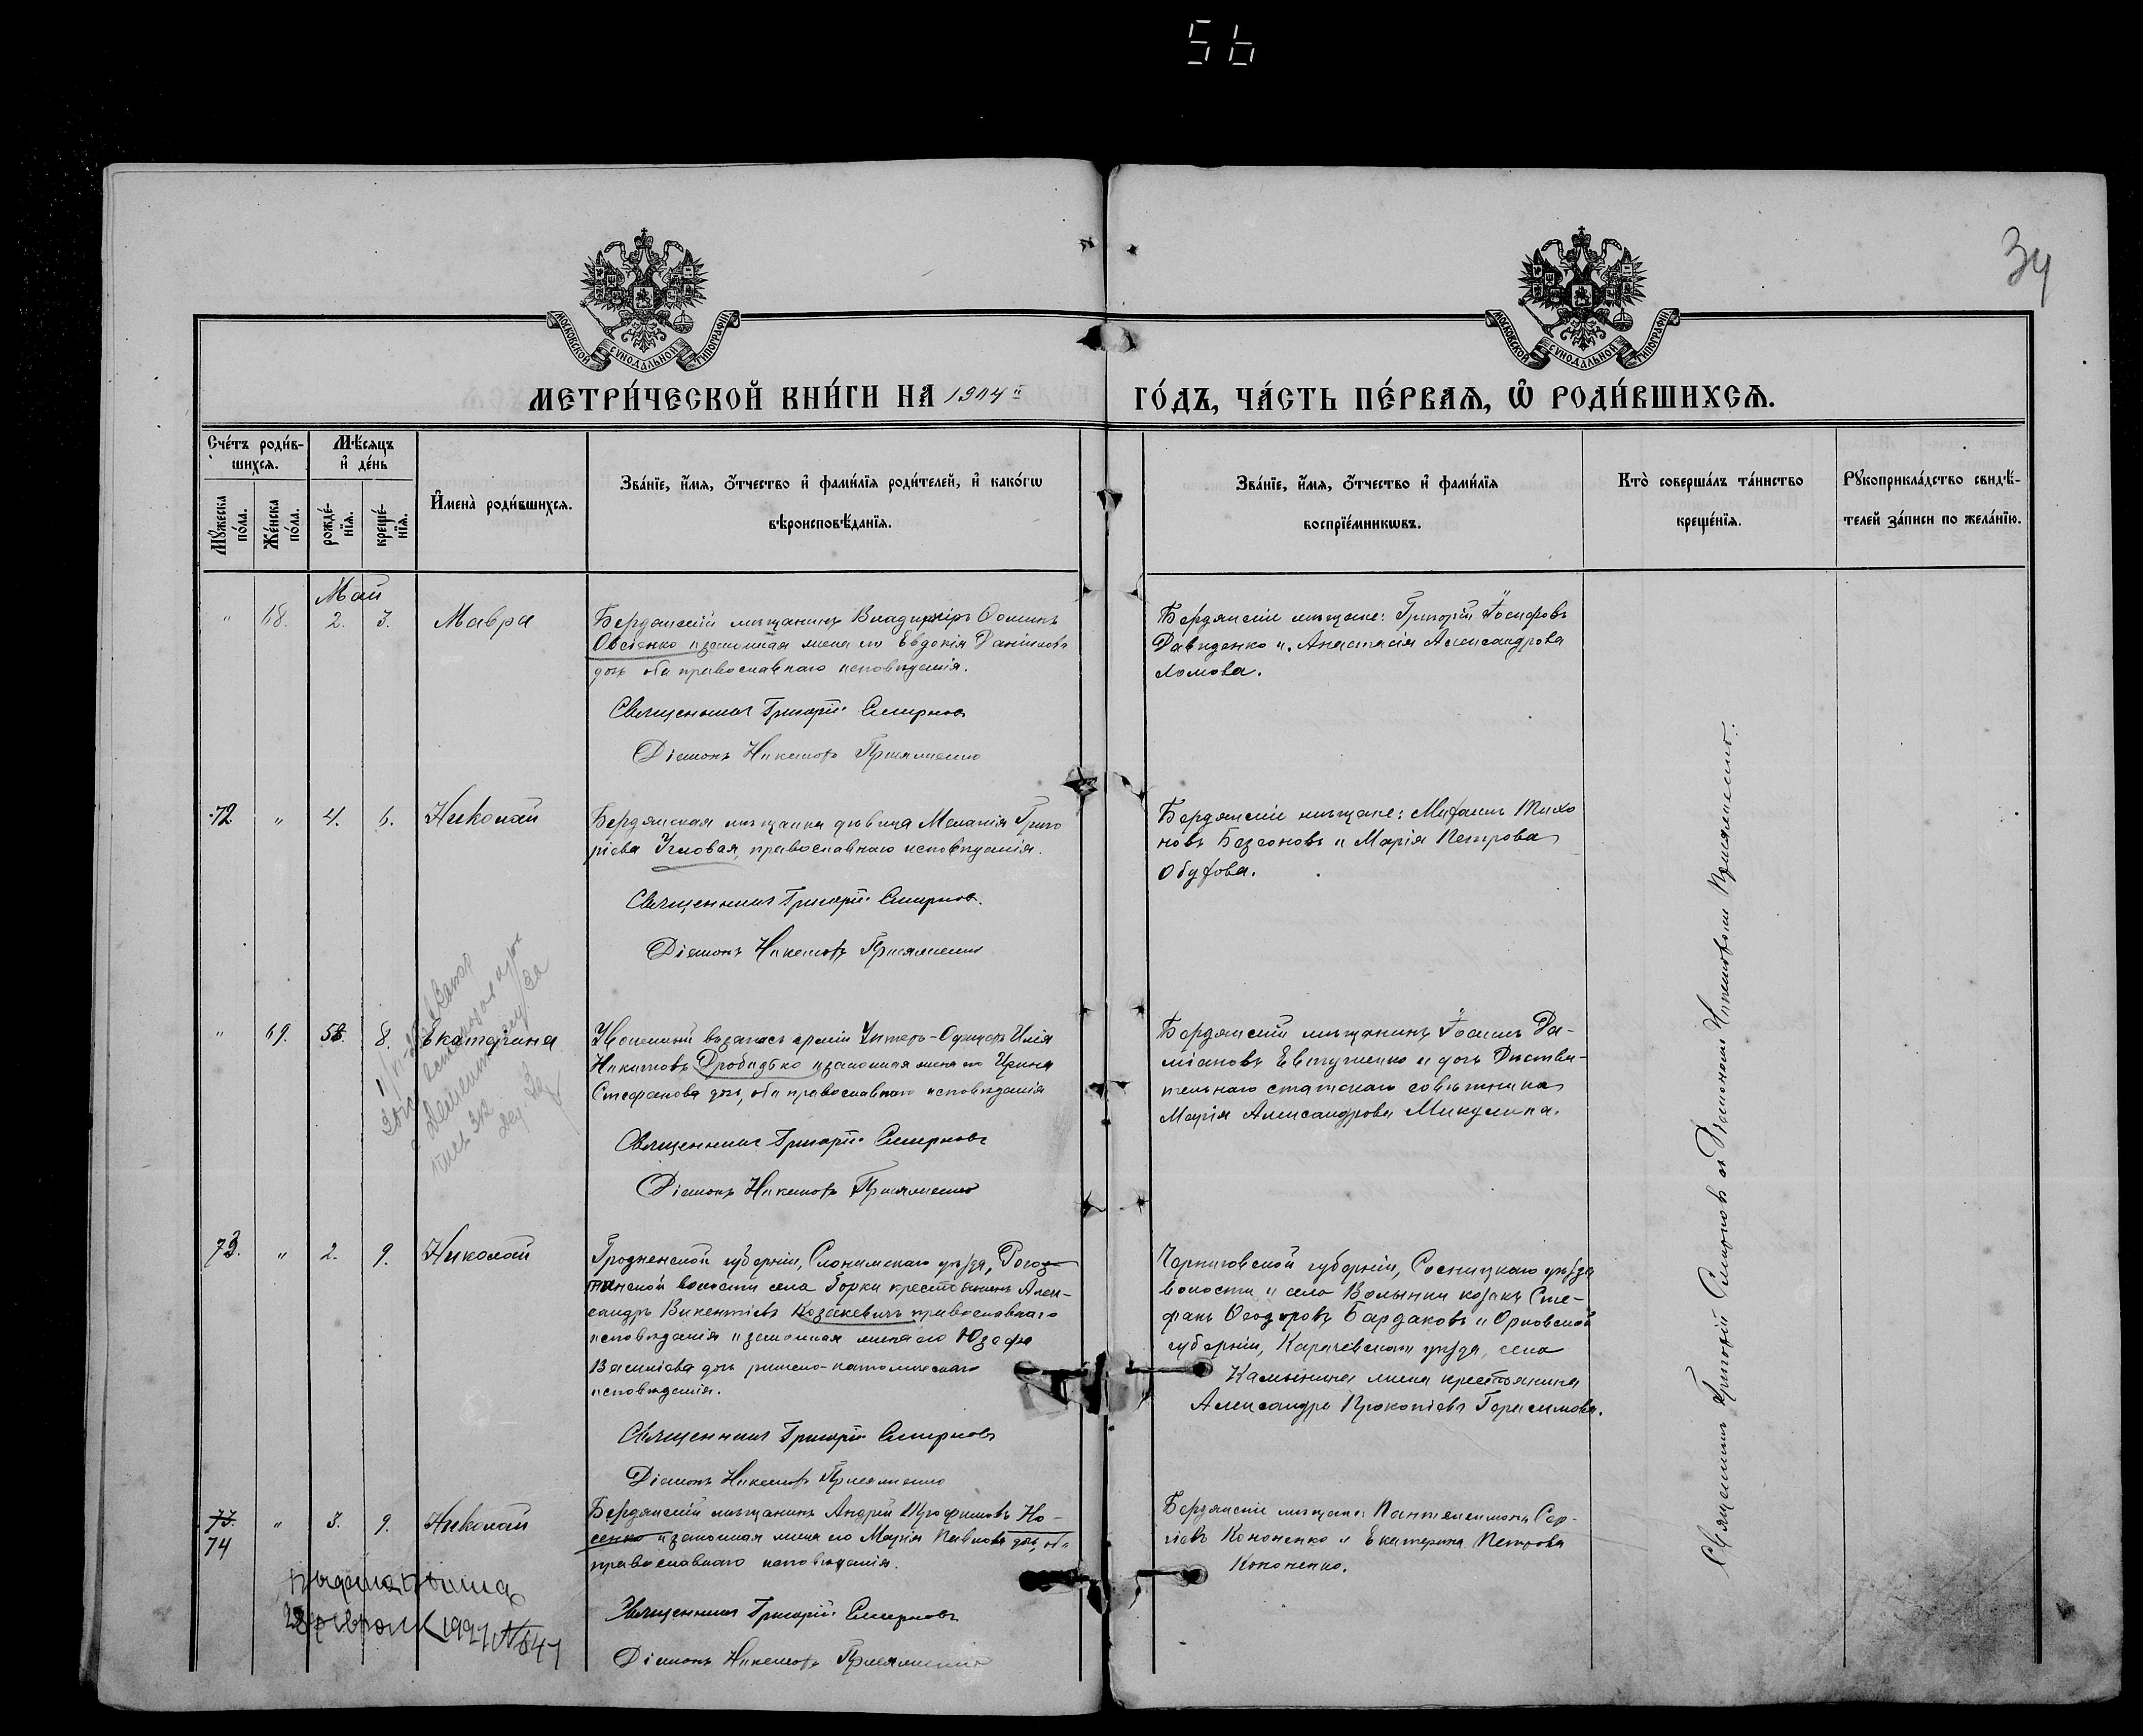 56
34
МОСКОВСКОЙ СѴНОДАЛЬНОЙ ТИПОГРАФІИ
МОСКОВСКОЙ СѴНОДАЛЬНОЙ ТИПОГРАФІИ
МЕТРИ́ЧЕСКОЙ КНИ́ГИ НА 1904 ГО́ДЪ, ЧА́СТЬ ПЕ́РВАѦ, Ѽ РОДИ́ВШИХСѦ.
Сче́тъ роди́в-
шихсѧ.
Мꙋ́жеска по́ла.
Же́нска по́ла.
Мѣ́сѧцъ
и҆ де́нь
рожде́-
нїѧ.
креще́-
нїѧ.
И҆мена̀ роди́вшихсѧ.
Зва́нїе, и҆́мѧ, ѻ҆́тчество и҆ фами́лїѧ роди́телей, и҆ како́гѡ
вѣроисповѣ́данїѧ.
Зва́нїе, и҆́мѧ, ѻ҆́тчество и҆ фами́лїѧ
воспрїе́мникѡвъ.
Кто̀ соверша́лъ та́инство
креще́нїѧ.
Рꙋкоприкла́дство свидѣ́-
телей за́писи по жела́нїю.
Май
" 68. 2. 3. Мавра
Бердянскій мѣщанинъ Владиміръ
Овсіенко и законная жена его Евдокія Даніилова
дочь оба православнаго исповѣданія.
Священникъ Григорій Смирновъ
Діаконъ Никифоръ
Бердянскіе мѣщане: Григорій Іосифовъ
Давиденко и Анастасія Александрова
Ломова.
72 " 4. 6. Николай
Бердянская мѣщанка дѣвица Меланія Григо
ріева православнаго исповѣданія.
Священникъ Григорій Смирновъ.
Діаконъ Никифоръ
Бердянскіе мѣщане: Михаилъ Тихо
новъ Безсоновъ и Марія Петрова
Обухова.
" 69. 5. 8. Екатерина
Уволенный въ запасъ арміи Унтеръ-Офицеръ Илія
Никитовъ Дробидько и законная жена его Ирина
Стефанова дочь, оба православнаго исповѣданія
Священникъ Григорій Смирновъ
Діаконъ Никифоръ
Бердянскій мѣщанинъ Іосифъ Да-
міановъ Евтушенко и дочь Дѣстви-
тельнаго статскаго совѣтника
Марія Александрова Микулина.
73. " 2. 9. Николай
Гродненской губерніи, Слонимскаго уѣзда,
волости села Горки крестьянинъ Алек-
сандръ Викентіевъ Козакевичъ православнаго
исповѣданія и законная жена его Юзефа
Василіева дочь римско-католическаго
исповѣданія.
Священникъ Григорій Смирновъ
Діаконъ Никифоръ
Черниговской губерніи, Сосницкаго уѣзда
волости и села Волынки козакъ Сте-
фанъ Ѳеодоровъ Бардаковъ и Орловской
губерніи, Карачевскаго уѣзда, села
жена крестьянина
Александра Прокопіева Герасимова.
73. " 3. 9. Николай
74
Бердянскій мѣщанинъ Андрей Трофимовъ Но-
сенко и законная жена его Марія Павлова дочь, оба
православнаго исповѣданія.
Священникъ Григорій Смирновъ
Діаконъ Никифоръ
Бердянскіе мѣщане: Пантелеимонъ Сер-
гіевъ Кононенко и Екатерина Петрова
Кононенко.
Священникъ Григорій Смирновъ съ Діакономъ Никифоромъ